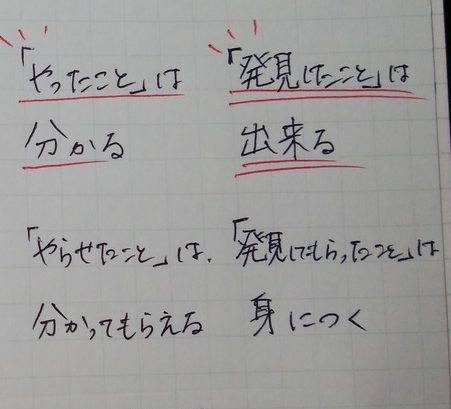 「やったこと」は
分かる
「発見したこと」は
出来る
「やらせたこと」は、
分かってもらえる
「発見してもらったこと」は
身につく